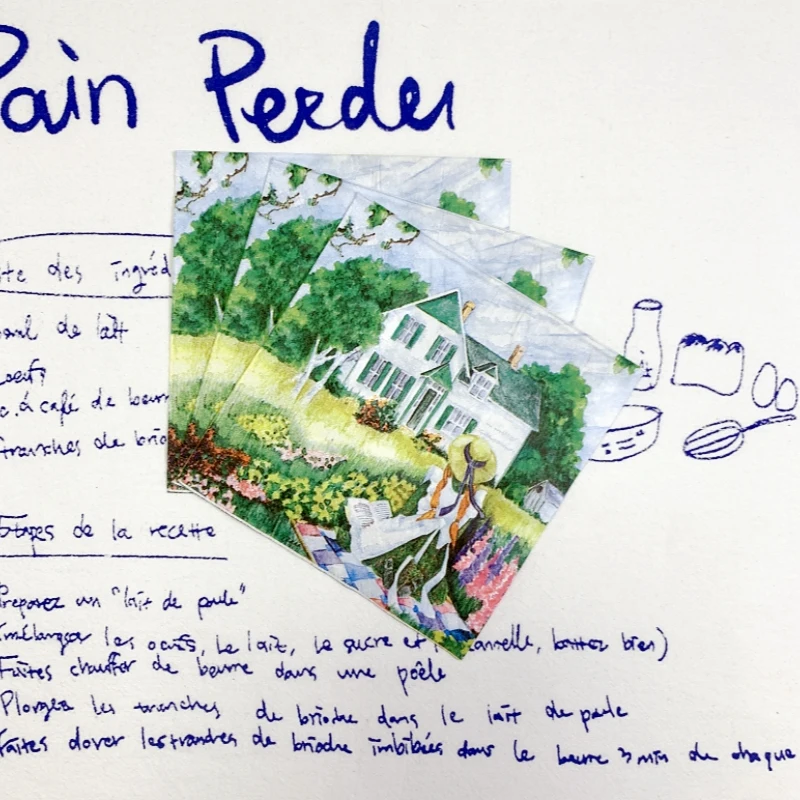 Pain Perdu
des ingréd
de lait
c. à café de beurr
tranches de brio
Etapes de la recette
Preparez un "lait de poule"
(mélanger les oeufs, le lait, le sucre et cannelle, battez bien)
Faites chauffer de beurre dans une poêle
Plongez les tranches de brioche dans le lait de poule
Faites dorer les tranches de brioche imbibées dans le beurre 3 min de chaque